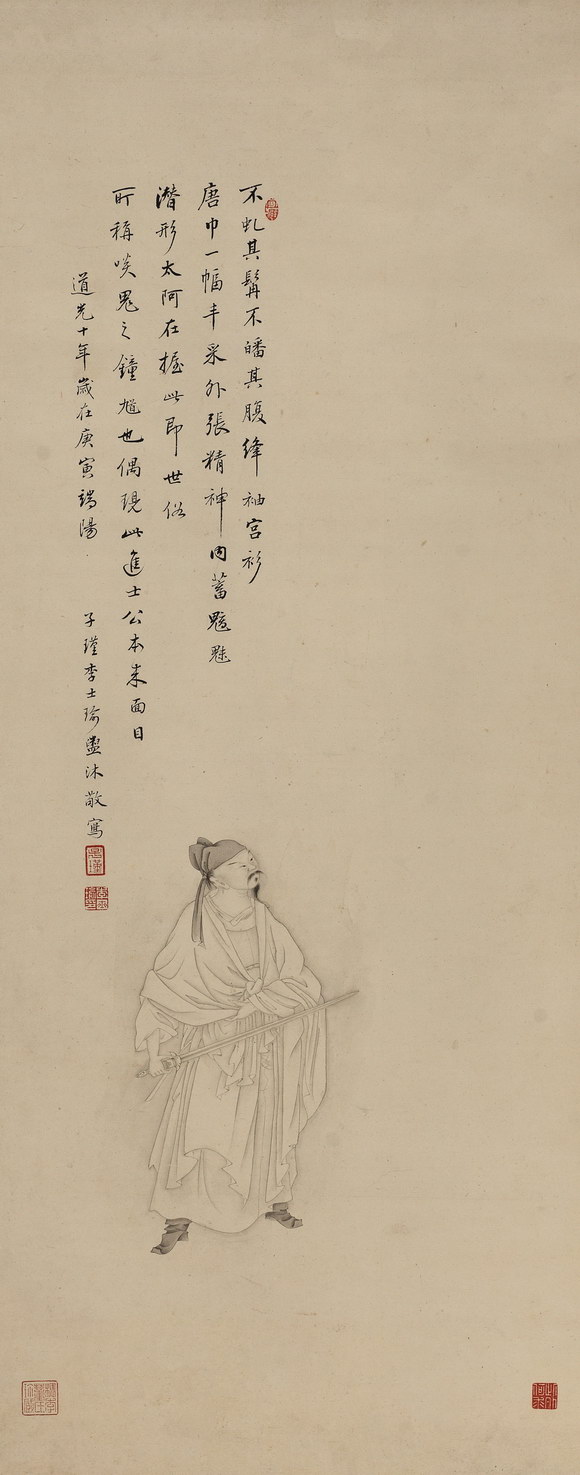 不虬其髯不皤其腹絳袖宫衫
唐巾一幅丰采外張精神內蓄魑魅
潛形太阿在握此即世俗
所稱啖鬼之鐘馗也偶現此進士公本来面目
道光十年歲在庚寅端陽
子瑾李士瑜盥沐敬寫